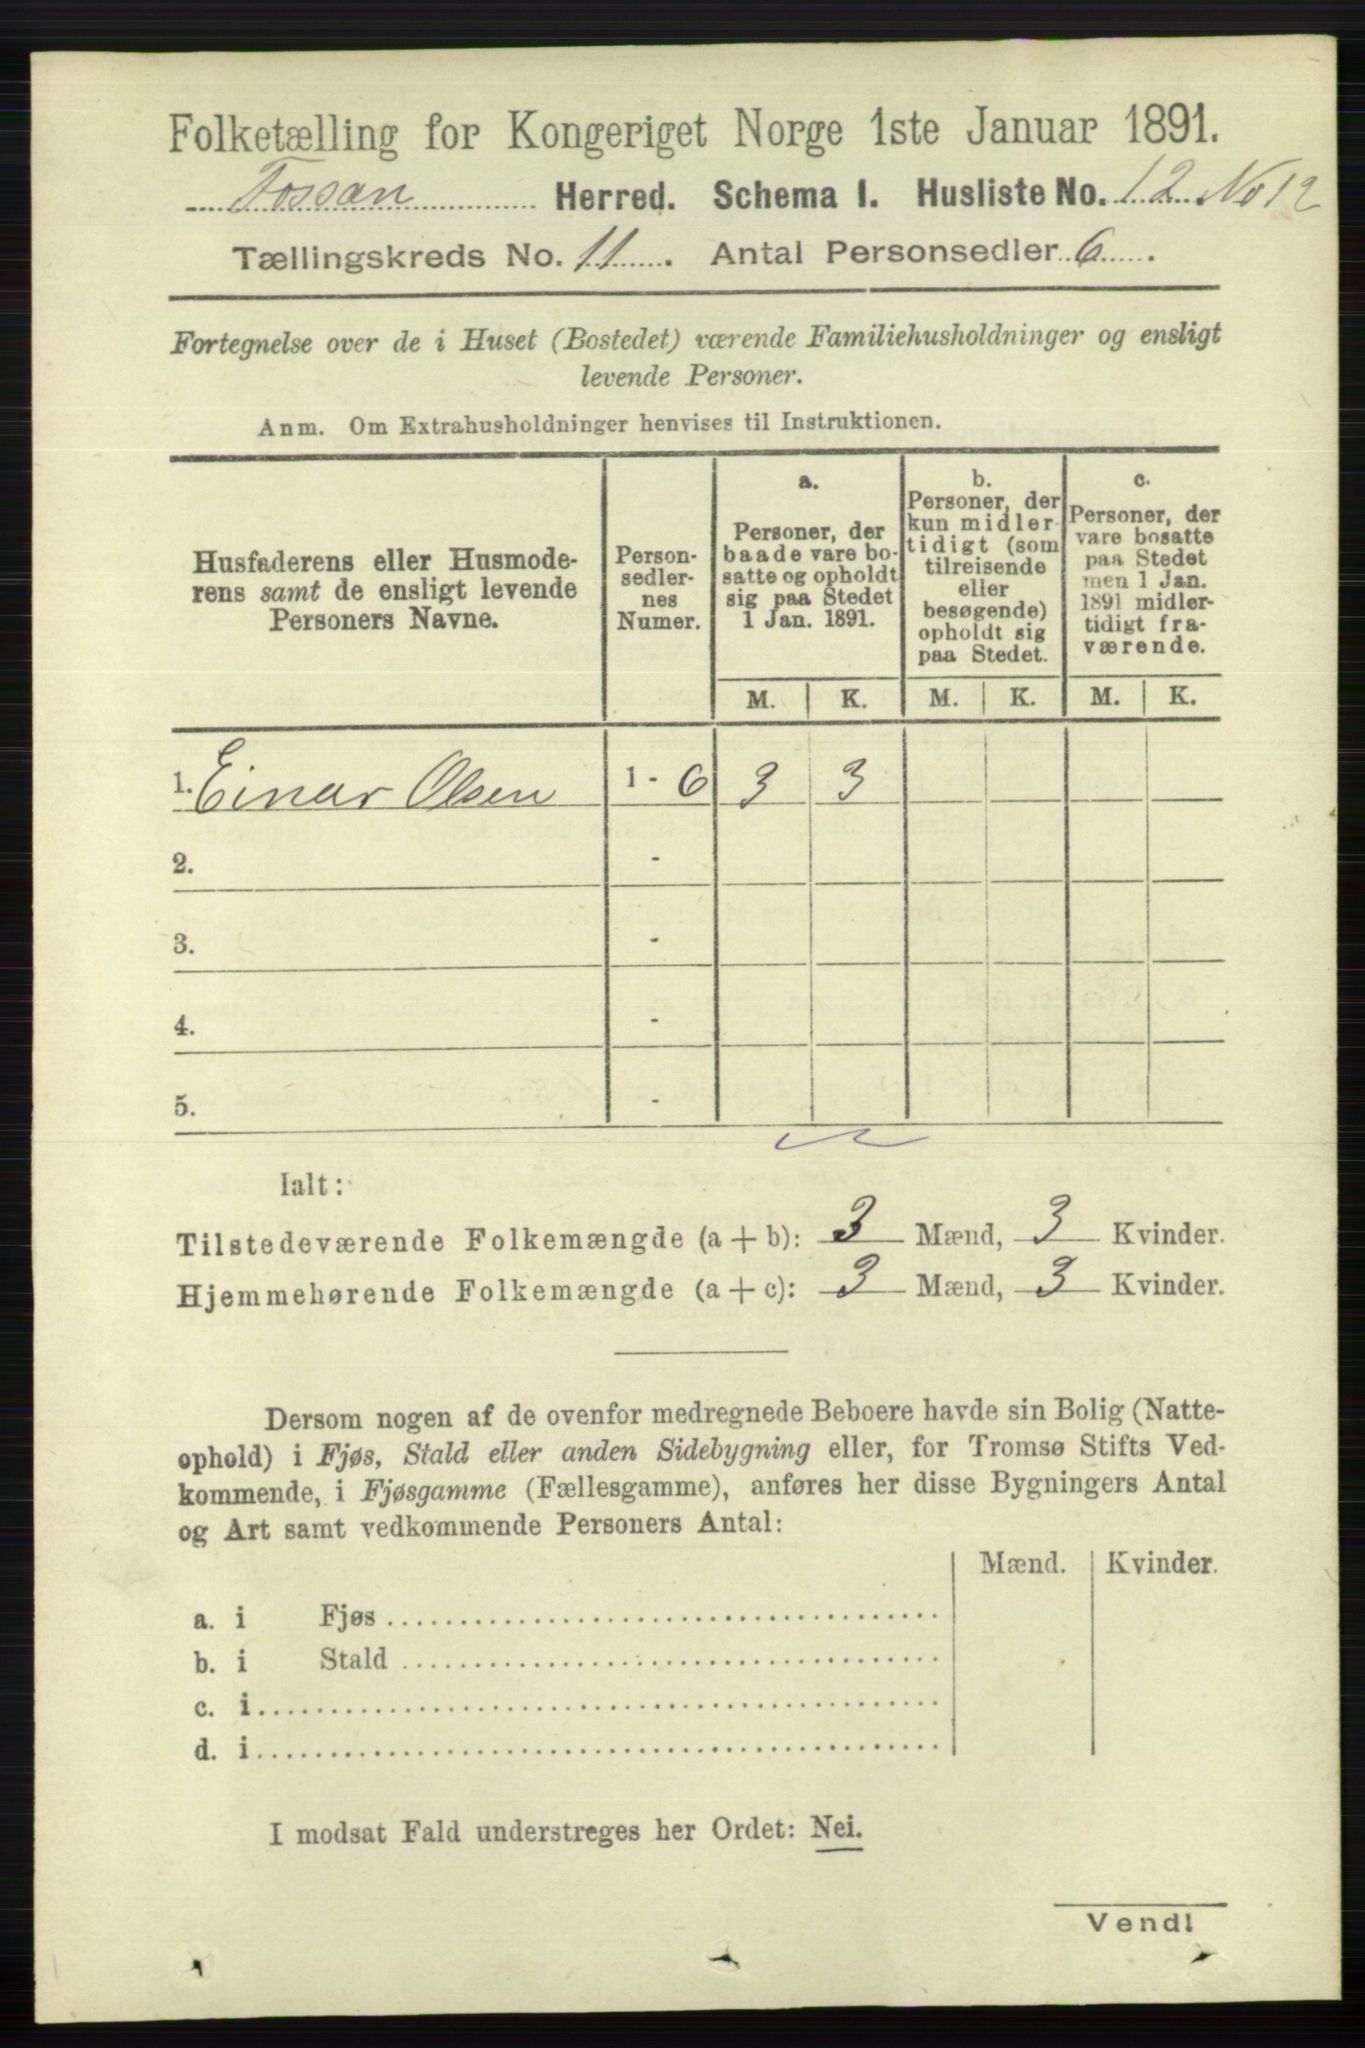 Folketælling for Kongeriget Norge 1ste Januar 1891.
Fossan Herred. Schema I. Husliste No. 12. No 12
Tællingskreds No. 11. Antal Personsedler 6.
Fortegnelse over de i Huset (Bostedet) værende Familiehusholdninger og ensligt
levende Personer.
Anm. Om Extrahusholdninger henvises til Instruktionen.
Husfaderens eller Husmode-
rens samt de ensligt levende
Personers Navne.
Person-
sedler-
nes
Numer.
a.
Personer, der
baade vare bo-
satte og opholdt
sig paa Stedet
1 Jan. 1891.
b.
Personer, der
kun midler-
tidigt (som
tilreisende
eller
besøgende)
opholdt sig
paa Stedet.
c.
Personer, der
vare bosatte
paa Stedet
men 1 Jan.
1891 midler-
tidigt fra-
værende.
M. K. M. K. M. K.
1. Einar Olsen 1 - 6 3 3
2. -
3. -
4. -
5. -
Ialt:
Tilstedeværende Folkemængde (a + b): 3 Mænd, 3 Kvinder.
Hjemmehørende Folkemængde (a + c): 3 Mænd, 3 Kvinder.
Dersom nogen af de ovenfor medregnede Beboere havde sin Bolig (Natte-
ophold) i Fjøs, Stald eller anden Sidebygning eller, for Tromsø Stifts Ved-
kommende, i Fjøsgamme (Fællesgamme), anføres her disse Bygningers Antal
og Art samt vedkommende Personers Antal:
Mænd. Kvinder.
a. i Fjøs
b. i Stald
c. i
d. i
I modsat Fald understreges her Ordet: Nei.
Vend!